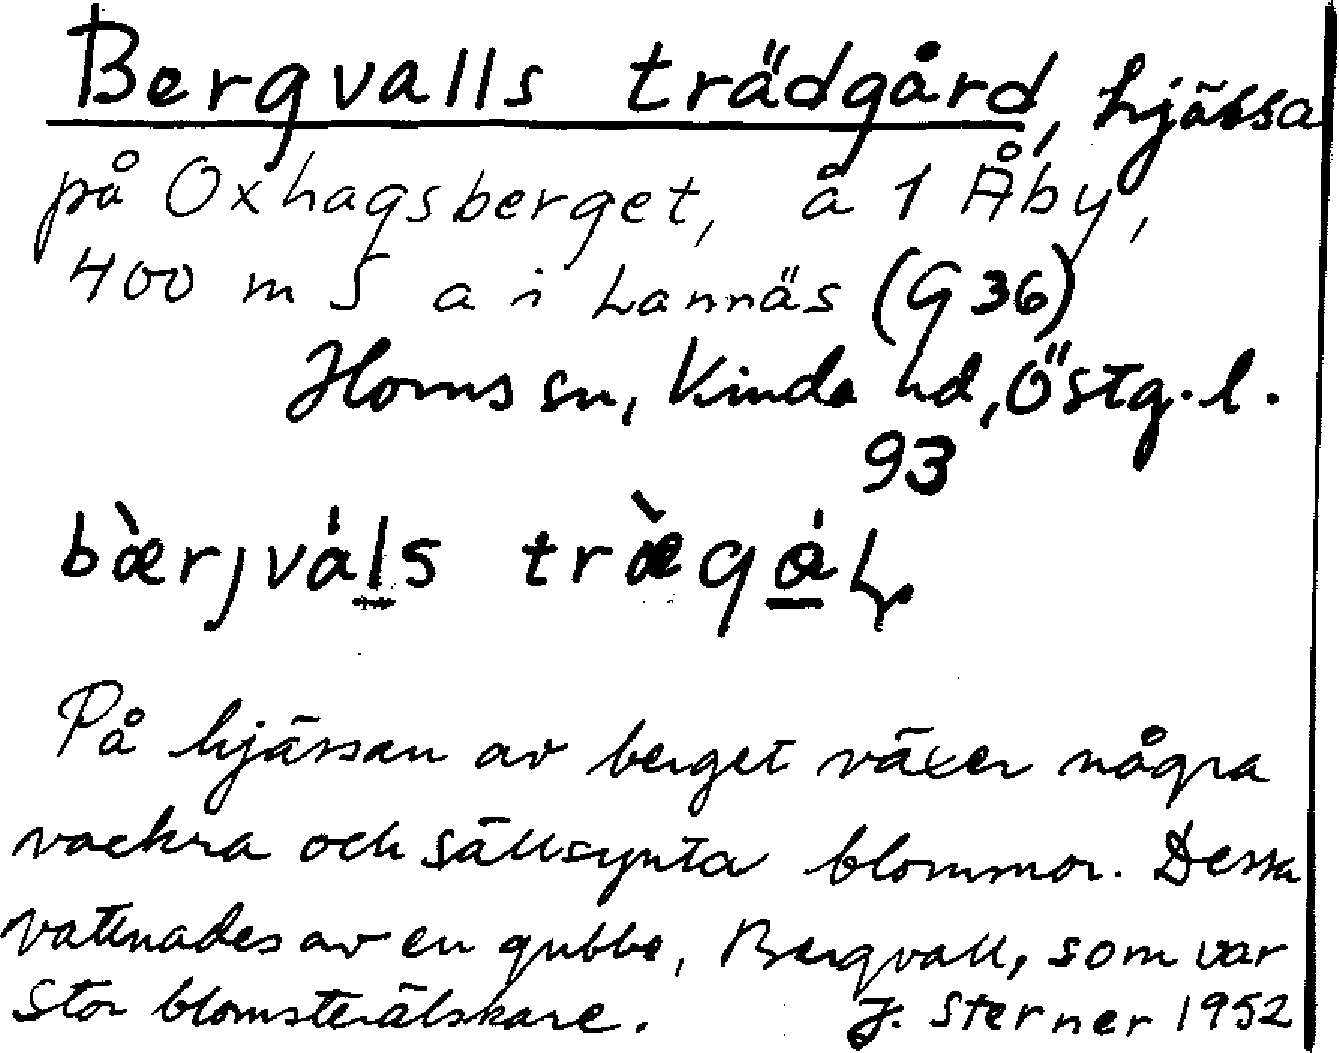 Bergvalls trädgård, hjässa
på Oxhagsberget, å 1 Åby,
400 m S a i Lannäs (G 36)
Horns sn, Kinda hd, Östg. l.
93
bæ̀rjvá̠l̠s træ̀gá̠ɽ
På hjässan av berget växer några
vackra och sällsynta blommor. Dessa
vattnades av en gubbe, Bergvall, som var
stor blomsterälskare. J. Sterner 1952